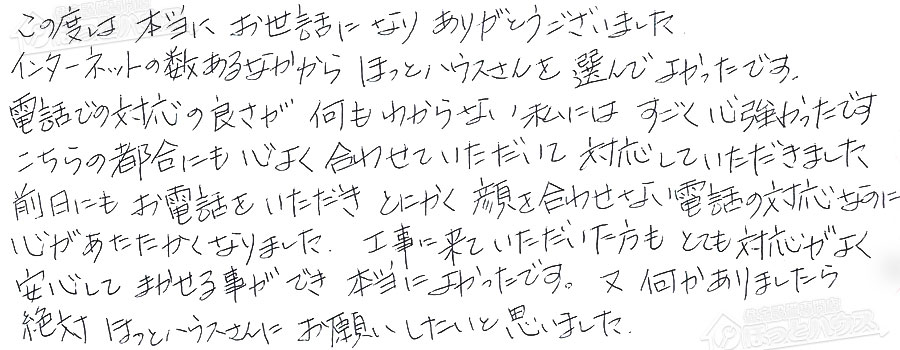 この度は 本当に お世話に なり ありがとうございました
インターネットの数あるなかから ほっとハウスさんを 選んで よかったです.
電話での対応の良さが 何も わからない 私には すごく 心強かったです
こちらの都合にも 心よく 合わせていただいて 対応していただきました
前日にも お電話を いただき とにかく 顔を合わせない電話の対応なのに
心があたたかくなりました. 工事に来ていただいた方も とても対応がよく
安心して まかせる事ができ 本当に よかったです。 又 何かありましたら
絶対 ほっとハウスさんに お願いしたいと思いました.
ほっとハウス